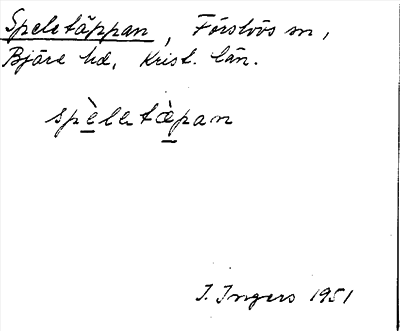 Speletäppan, Förslövs sn,
Bjäre hd, Krist. län.
spèletæ̀pan
I. Ingers 1951